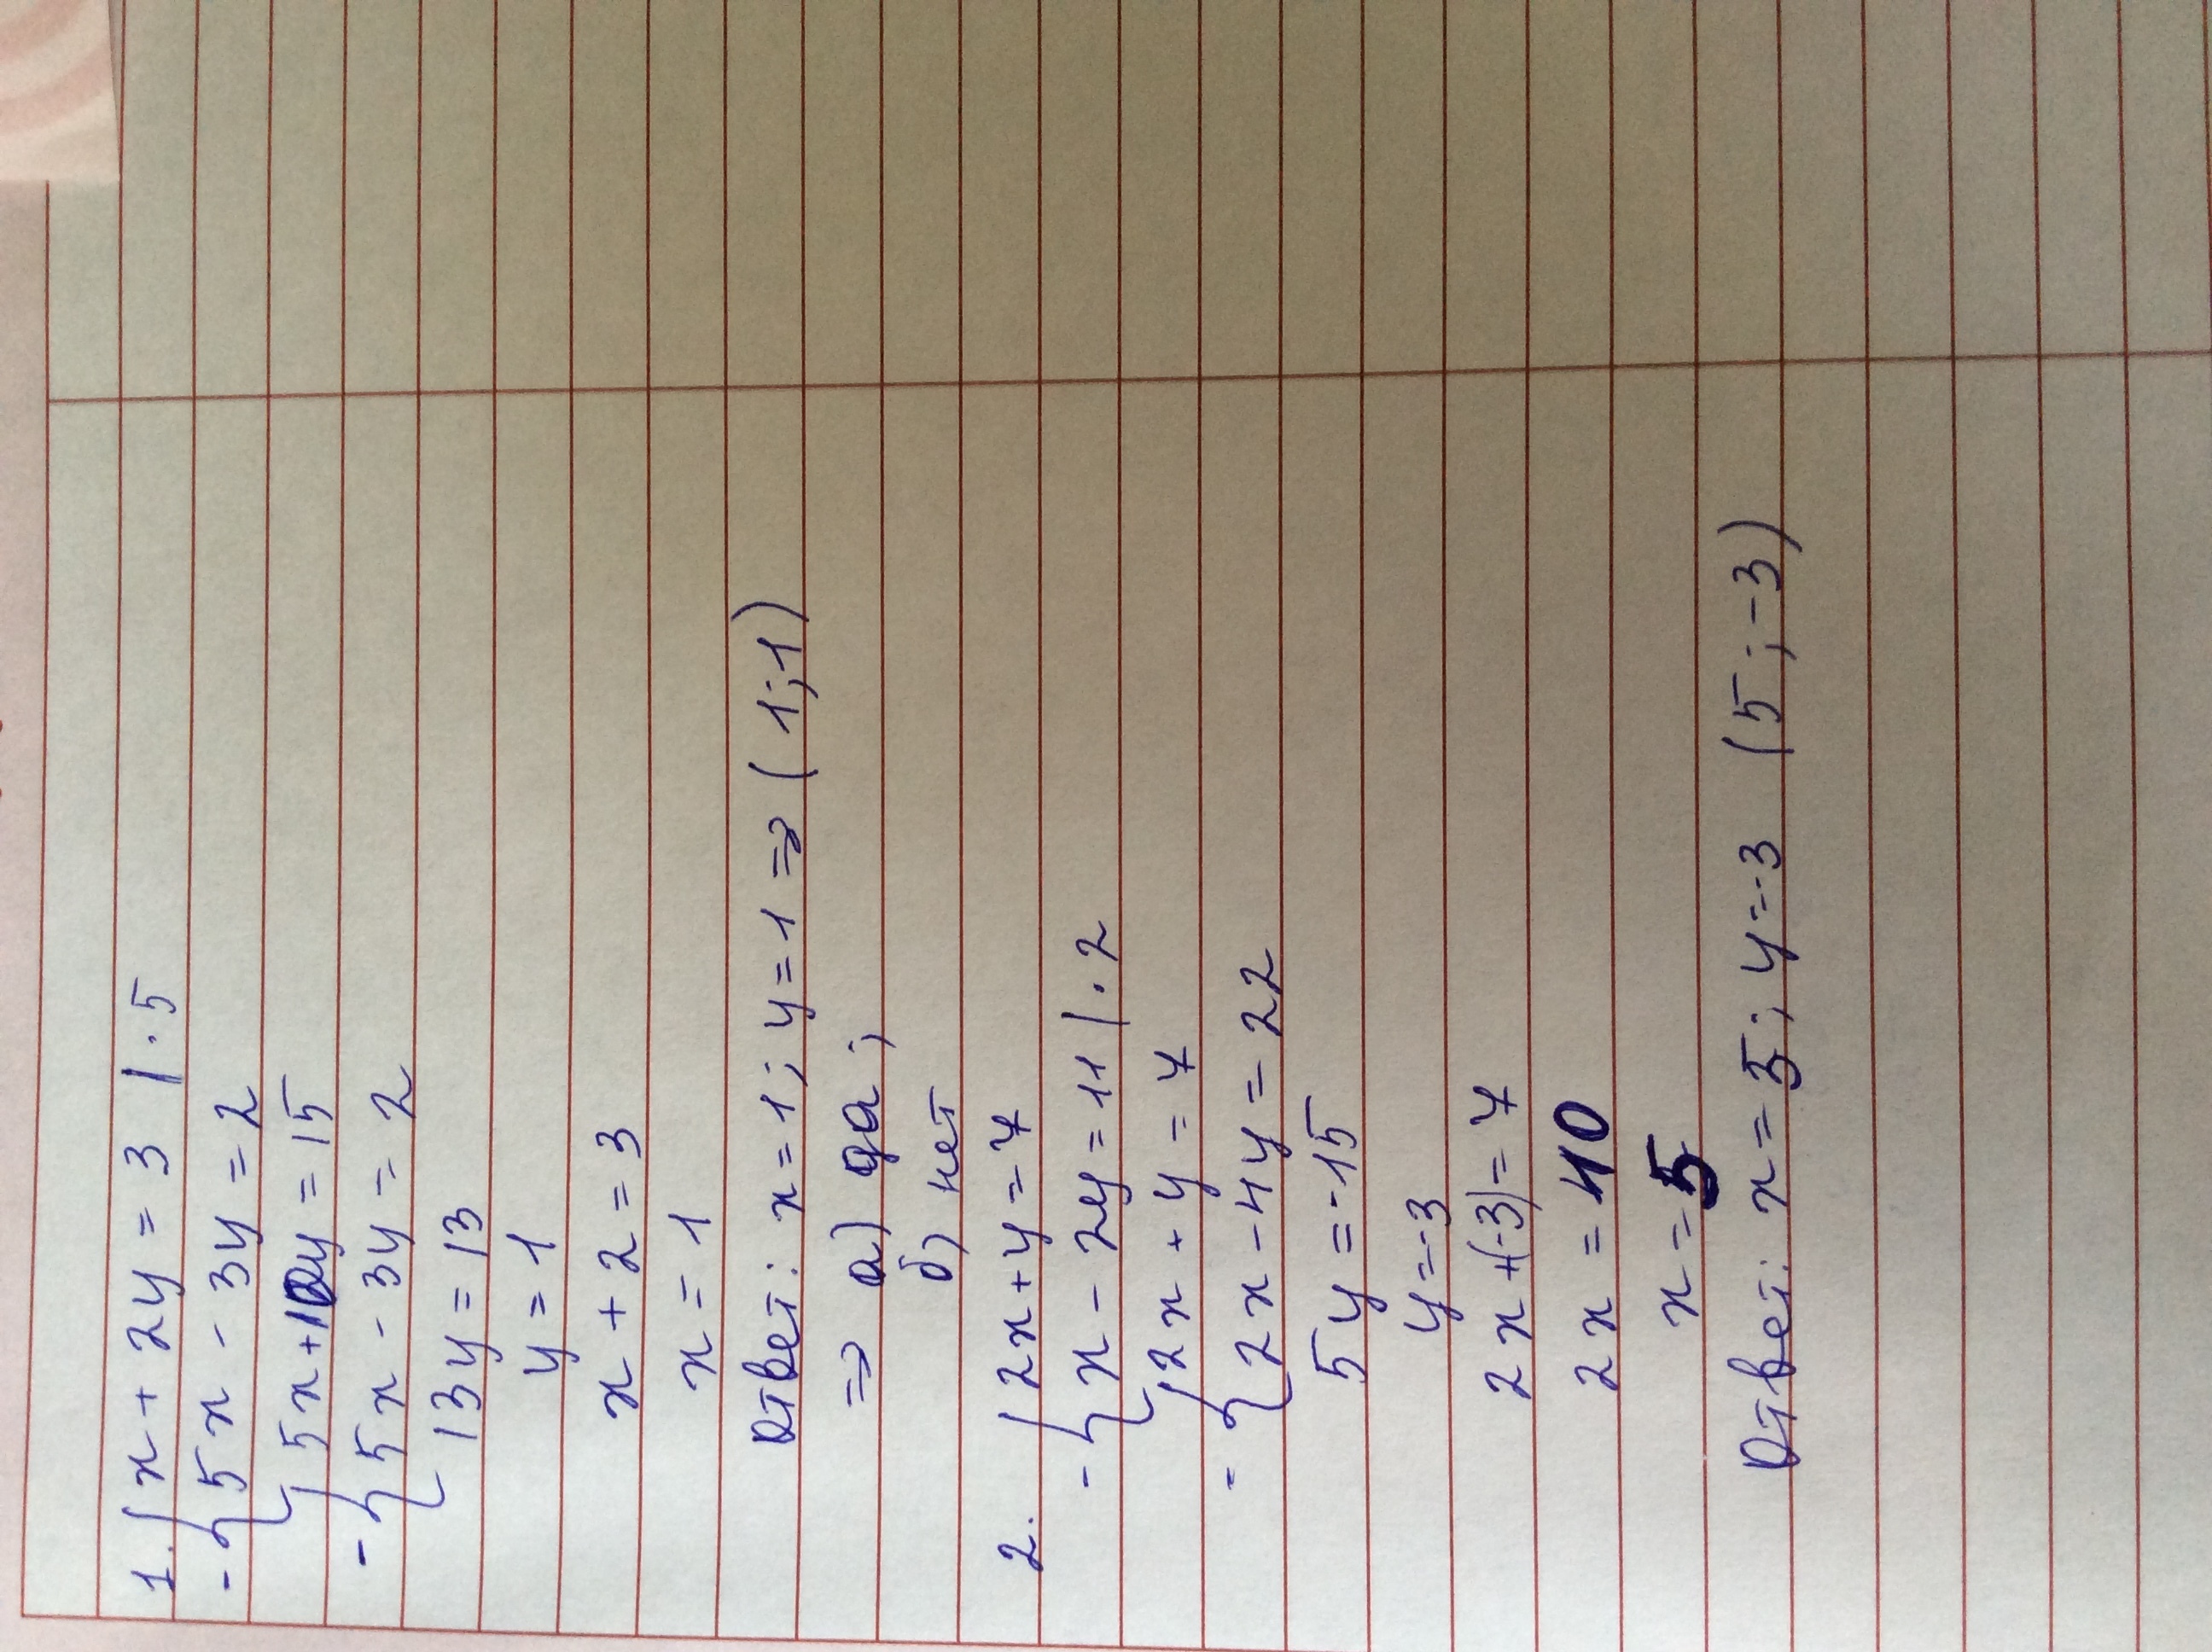 1. { x + 2y = 3 | · 5
- { 5x - 3y = 2
{ 5x + 10y = 15
- { 5x - 3y = 2
13y = 13
y = 1
x + 2 = 3
x = 1
Ответ: x = 1; y = 1 => (1;1)
=> а) да;
б) нет
2. { 2x + y = 7
- { x - 2y = 11 | · 2
{ 2x + y = 7
- { 2x - 4y = 22
5y = -15
y = -3
2x + (-3) = 7
2x = 10
x = 5
Ответ: x = 5; y = -3 (5; -3)